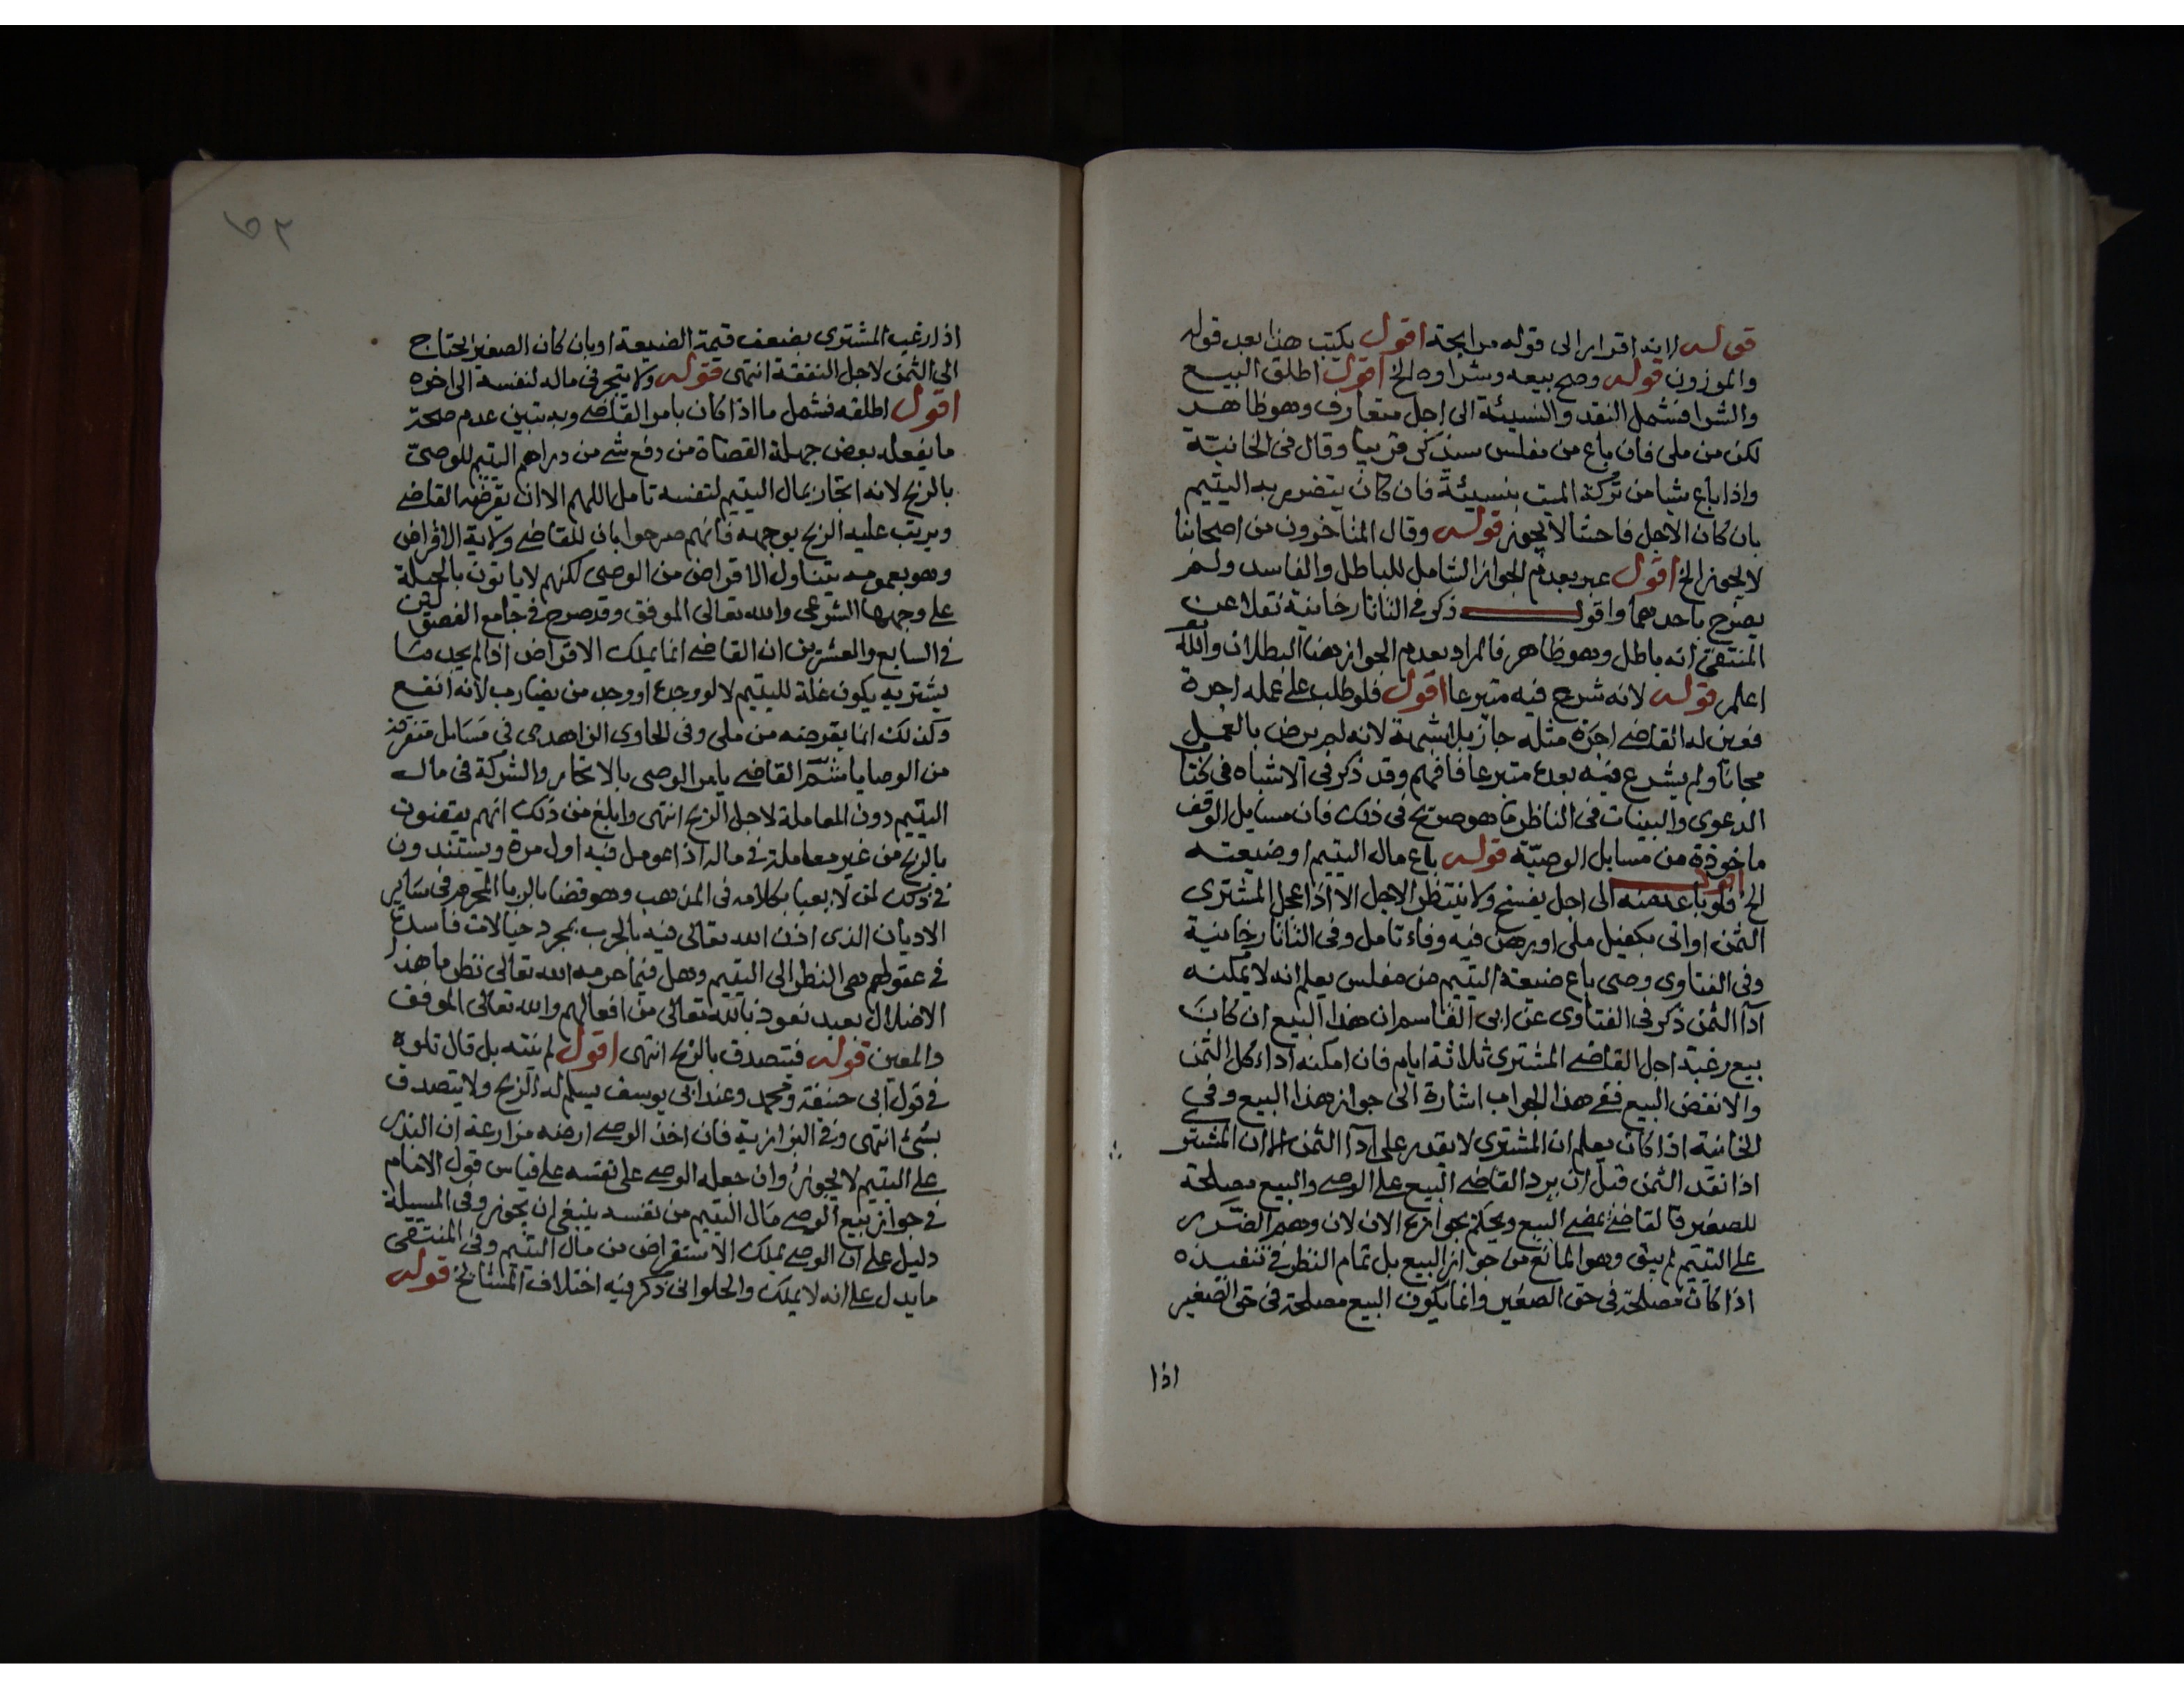 قوله لا بد اقرارا الى قوله مرابحة اقول يكتب هذا بعد قوله
والموزون قوله وصح بيعه وشراوه الخ اقول اطلق البيع
والشرا فشمل النقد والنسيئة الى اجل متعارف وهو ظاهر
لكن من ملي فان باع من مفلس سيذكر قريبا وقال في الخانية
واذا باع شيا من تركة الميت بنسيئة فان كان يتضرر به اليتيم
بان كان الاجل فاحشا لا يجوز قوله وقال المتاخرون من اصحابنا
لا يجوز الخ اقول عبر بعدم الجواز الشامل للباطل والفاسد ولم
يصرح باحدهما واقول ذكر في التاتارخانية نقلا عن
المنتقى انه باطل وهو ظاهر فالمراد بعدم الجواز هنا البطلان والله تع
اعلم قوله لانه شرع فيه متبرعا اقول فلو طلب على عمله اجرة
فعين له القاضي اجرة مثله جاز بلا شبهة لانه لم يرض بالعمل
مجانا ولم يشرع فيه بعد متبرعا فافهم وقد ذكر في الاشباه في كتا
الدعوي والبينات في الناظر ما هو صريح في ذلك فان مسايل الوقف
ماخوذة من مسايل الوصية قوله باع مال اليتيم او ضيعته
الخ اقول فلو باعه منه الى اجل يفسخ ولا ينتظر الاجل الا اذا عجل المشترى
الثمن او اتى بكفيل ملي او برهن فيه وفاء تامل وفي التاتارخانية
وفي الفتاوى وصى باع ضيعة اليتيم من مفلس يعلم انه لا يمكنه
ادآ الثمن ذكر في الفتاوى عن ابى القاسم ان هذا البيع ان كان
بيع رغبة اجل القاضي المشترى ثلاثة ايام فان امكنه اداء كل الثمن
والا نقض البيع ففي هذا الجواب اشارة الى جواز هذا البيع وفي
الخانية اذا كان يعلم ان المشتري لا يقدر على ادآ الثمن الا ان المشتر
اذا نقد الثمن قبل ان يرد القاضي البيع على الوصي والبيع مصلحة
للصغير فالقاضي يمضي البيع ويحكم بجوازه الان لان وهم الضرر
على اليتيم لم يبق وهو المانع من جواز البيع بل تمام النظر في تنفيذه
اذا كان مصلحة في حق الصغير وانما يكون البيع مصلحة في حق الصغير
اذا
اذا رغب المشترى بضعف قيمة الضيعة او بان كان الصغير يحتاج
الى الثمن لاجل النفقة انتهى قوله ولا يتجر في ماله لنفسه الى اخره
اقول اطلقه فشمل ما اذا كان بامر القاضي وبه تبين عدم صحة
ما يفعله بعض جهلة القضاة من دفع شي من دراهم اليتيم للوصي
بالربح لانه اتجار بمال اليتيم لنفسه تامل اللهم الا ان يقرضه القاضي
ويرتب عليه الربح بوجهه فانهم صرحوا بان للقاضي ولاية الاقراض
وهو بعمومه يتناول الاقراض من الوصى لكنهم لا ياتون بالحيلة
على وجهها الشرعى والله تعالى الموفق وقد صرح في جامع الفصولين
في السابع والعشرين ان القاضي انما يملك الاقراض اذا لم يجد شا
يشتريه يكون غلة لليتيم لا لو وجده او وجد من يضارب لانه انفع
وكذلك انما يقرضه من ملى وفي الحاوى الزاهدى في مسايل متفرقة
من الوصايا القاضي يامر الوصى بالاتجار والشركة في مال
اليتيم دون المعاملة لاجل الربح انتهى وابلغ من ذلك انهم يقضون
بالربح من غير معاملة في ماله اذا عومل فيه اول مرة ويستندون
في ذلك لمن لا يعبا بكلامه في المذهب وهو قضا بالربا المحرم في ساير
الاديان الذى اذن الله تعالى فيه بالحرب بمجرد خيالات فاسدة
في عقولهم هى النظر الى اليتيم وهل فيما حرمه الله تعالى نظر ما هذا
الا ضلال بعيد نعوذ بالله تعالى من افعالهم والله تعالى الموفق
والمعين قوله فتصدق بالربح انتهى اقول لم ينته بل قال تلوه
في قول ابى حنيفة ومحمد وعند ابى يوسف يسلم له الربح ولا يتصدق
بشئ انتهى وفي البزازية فان اخذ الوصي ارضه مزارعة ان البذر
على اليتيم لا يجوز وان جعله الوصي على نفسه على قياس قول الامام
في جواز بيع الوصي مال اليتيم من نفسه ينبغي ان يجوز وفي المسيلة
دليل على ان الوصي يملك الاستقراض من مال اليتيم وفي المنتقى
ما يدل على انه لا يملك والحلوانى ذكر فيه اختلاف المشايخ قوله